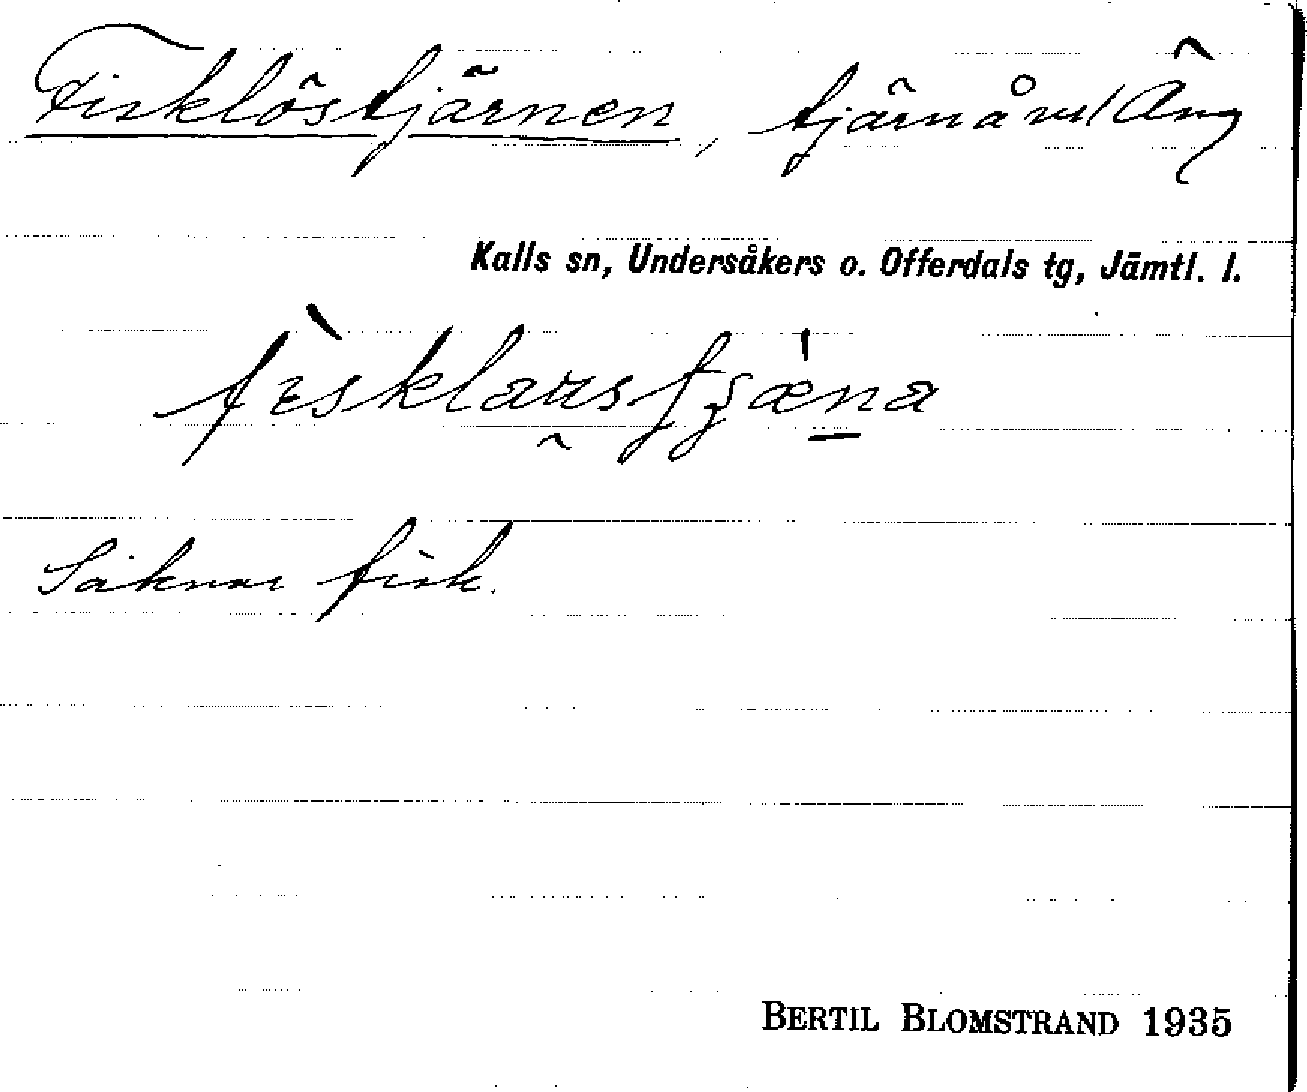 Fisklöstjärnen, tjärn å
Kalls sn, Undersåkers o. Offerdals tg, Jämtl. l.
Saknar fisk.
BERTIL BLOMSTRAND 1935